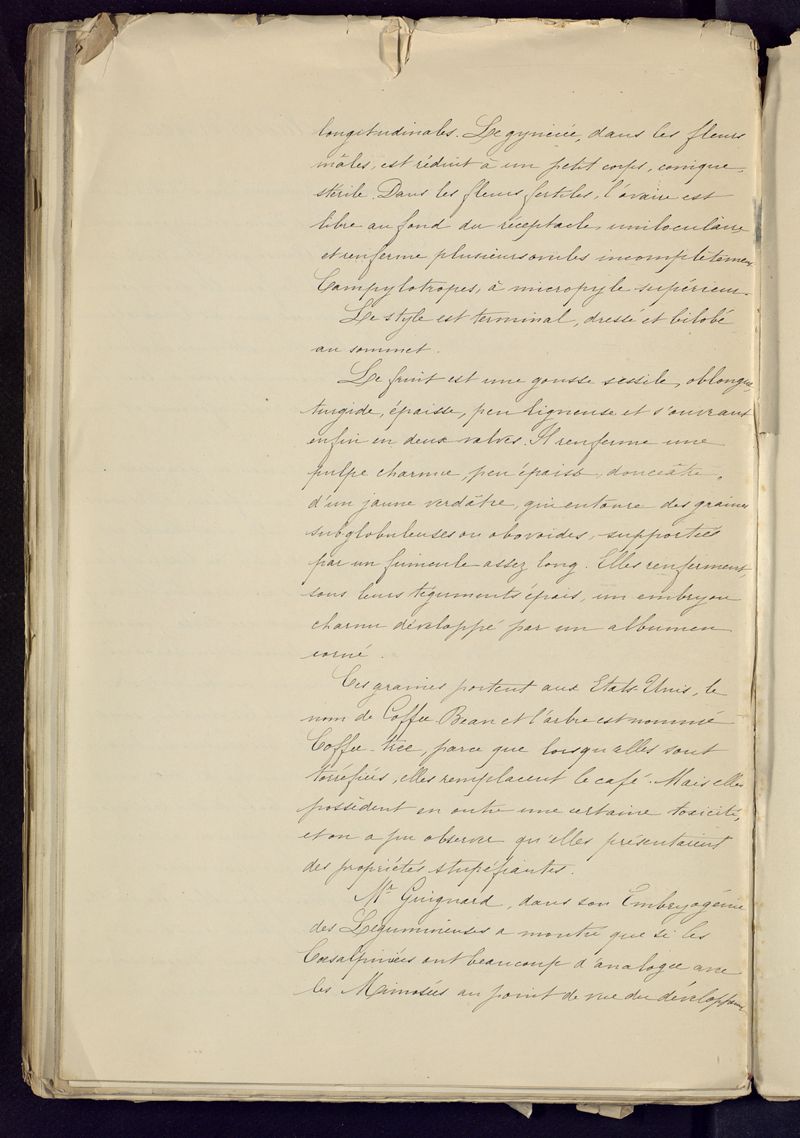 longitudinales. Le gynécée, dans les fleurs
mâles, est réduit à un petit corps, conique,
stérile. Dans les fleurs fertiles, l'ovaire est
libre au fond du réceptacle, uniloculaire,
et renferme plusieurs ovules incomplètemen
Campylotropes, à micropyle supérieur.
Le style est terminal, dressé et bilobé
au sommet.
Le fruit est une gousse sessile, oblongue,
turgide, épaisse, peu ligneuse et s'ouvrant
enfin en deux valves. Il renferme une
pulpe charnue, peu épaisse, douceâtre,
d'un jaune verdâtre, qui entoure des graines
subglobuleuses ou obovoïdes, supportées
par un funicule assez long. Elles renferment,
sous leurs téguments épais, un embryon
charnu développé par un albumen
corné.
Ces graines portent aux Etats-Unis, le
nom de Coffee Bean et l'arbre est nommé
Coffee-tree, parce que lorsqu'elles sont
torréfiées, elles remplacent le café. Mais elles
possèdent en outre une certaine toxicité,
et on a pu observer qu'elles présentaient
des propriétés stupéfiantes.
Mr Guignard, dans son Embryogénie
des Légumineuses a montré que si les
Cæsalpiniées ont beaucoup d'analogie avec
les Mimosées au point de vue du développem